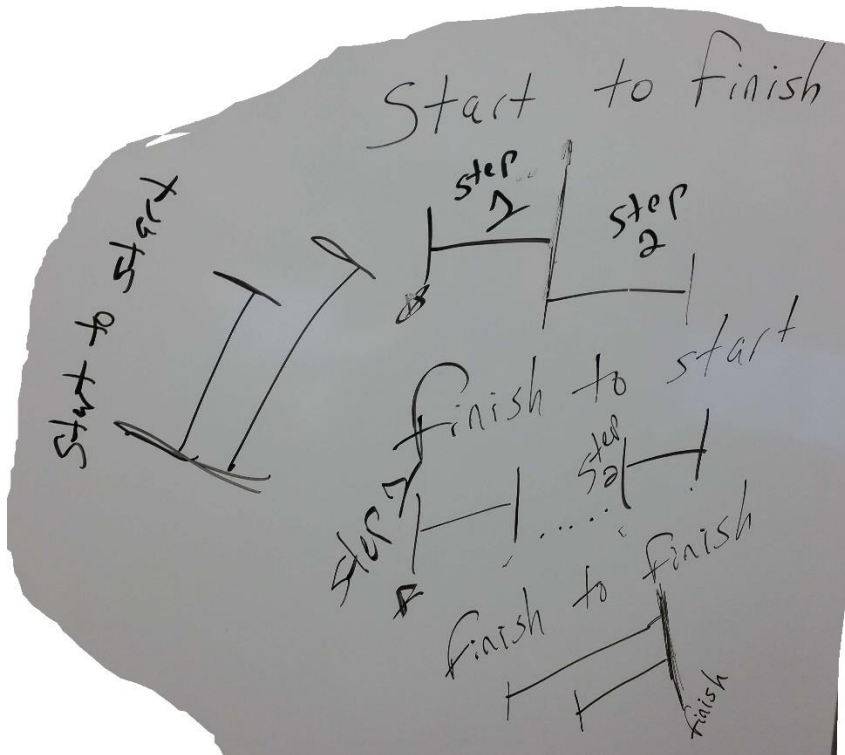 Start to finish
step
1
step
2
Start to start
finish to start
step 1
step
2
finish to finish
finish